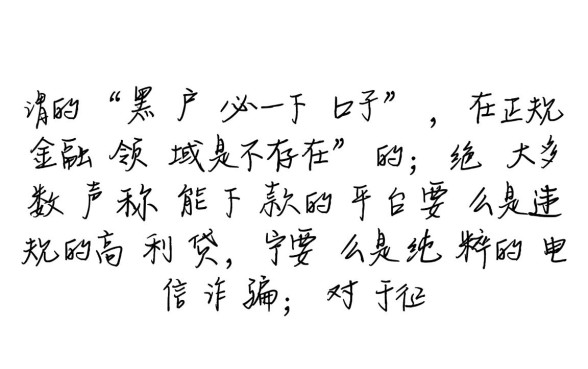 谓的“黑户必一下口子”，在正规
金融领域是不存在”的；绝大多
数声称能下款的平台要么是违
规的高利贷，要么是纯粹的电
信诈骗；对于征